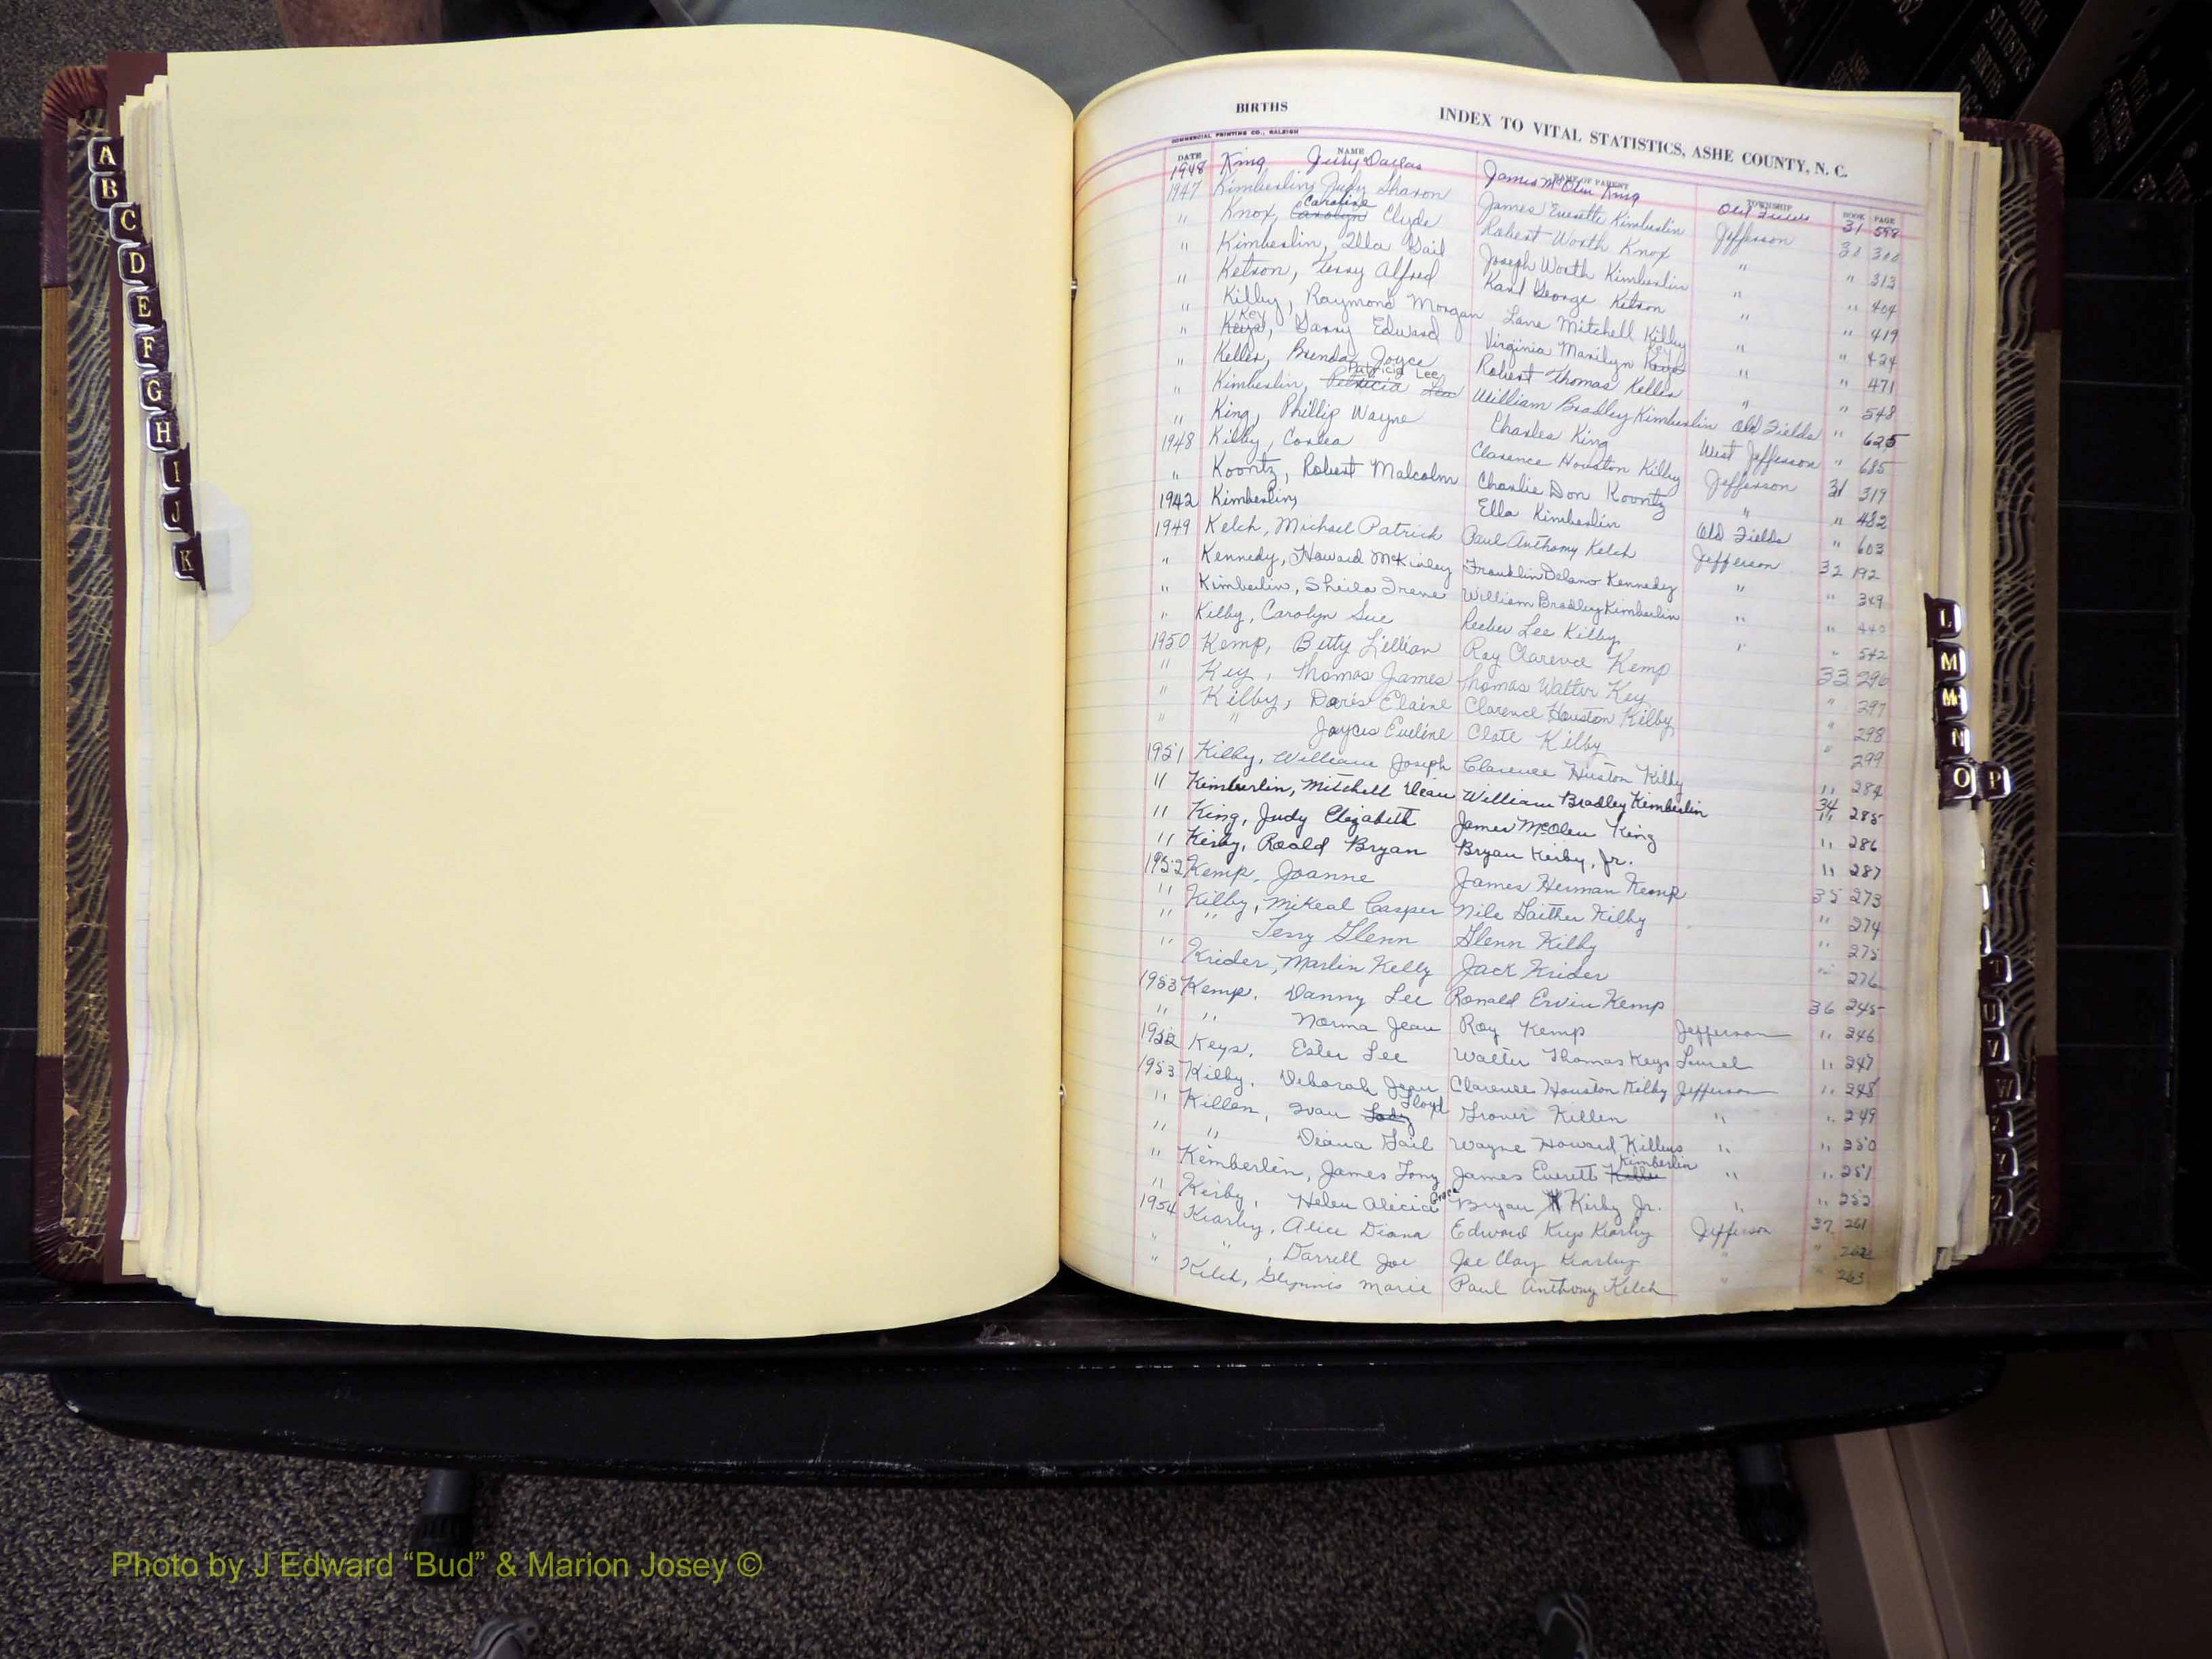 A
B
C
D
E
F
G
H
I
J
K
BIRTHS
INDEX TO VITAL STATISTICS, ASHE COUNTY, N. C.
COMMERCIAL PRINTING CO., RALEIGH
DATE NAME NAME OF PARENT TOWNSHIP BOOK PAGE
1948 King Jerry Dallas James McOlen King Old Fields 31 598
1947 Kimberlin, Judy Sharon James Everette Kimberlin Jefferson 30 300
" Knox, Carolyn Caroline Clyde Robert Worth Knox " " 313
" Kimberlin, Illa Gail Joseph Worth Kimberlin " " 404
" Ketron, Terry Alfred Karl George Ketron " " 419
" Kilby, Raymond Morgan Lane Mitchell Kilby " " 424
" Keys, Key Garry Edward Virginia Marilyn Keys Key " " 471
" Keller, Brenda Joyce Robert Thomas Keller " " 548
" Kimberlin, Patricia Lee William Bradley Kimberlin Old Fields " 625
" King, Phillip Wayne Charles King West Jefferson " 685
1948 Kilby, Clarence Houston Kilby Jefferson 31 319
" Koontz, Robert Malcolm Charlie Don Koontz " " 482
1942 Kimberlin, Ella Kimberlin Old Fields " 603
1949 Kelch, Michael Patrick Paul Anthony Kelch Jefferson 32 192
" Kennedy, Howard McKinley Franklin Delano Kennedy " " 349
" Kimberlin, Sheila Irene William Bradley Kimberlin " " 440
" Kilby, Carolyn Sue Reeber Lee Kilby " " 542
1950 Kemp, Betty Lillian Roy Clarence Kemp 33 296
" Key, Thomas James Thomas Walter Key " 297
" Kilby, Doris Elaine Clarence Houston Kilby " 298
" " Joyces Eveline Clate Kilby " 299
1951 Kilby, William Joseph Clarence Huston Kilby 34 284
" Kimberlin, Mitchell Dean William Bradley Kimberlin " 285
" King, Judy Elizabeth James McOlen King " 286
" Kirby, Roald Bryan Bryan Kirby, Jr. " 287
1952 Kemp, Joanne James Herman Kemp 35 273
" Kilby, Mikeal Casper Nile Gaither Kilby " 274
" " Terry Glenn Glenn Kilby " 275
" Krider, Marlin Kelly Jack Krider " 276
1953 Kemp, Danny Lee Ronald Ervin Kemp 36 245
" " Norma Jean Roy Kemp Jefferson " 246
1952 Keys, Ester Lee Walter Thomas Keys Laurel " 247
1953 Kilby, Deborah Jean Clarence Houston Kilby Jefferson " 248
" Killen, Ivan Floyd Grover Killen " " 249
" " Diana Gail Wayne Howard Killens " " 250
" Kimberlin, James Tony James Everett Kimberlin " " 251
" Kirby, Helen Alicia Grace Bryan Kirby Jr. " " 252
1954 Kearby, Alice Diana Edward Keys Kearby Jefferson 37 261
" " , Darrell Joe Joe Clay Kearby " " 262
" Kelch, Glynnis Marie Paul Anthony Kelch " " 263
L
M
Mc
N
O P
T
U
V
W
Photo by J Edward “Bud” & Marion Josey ©